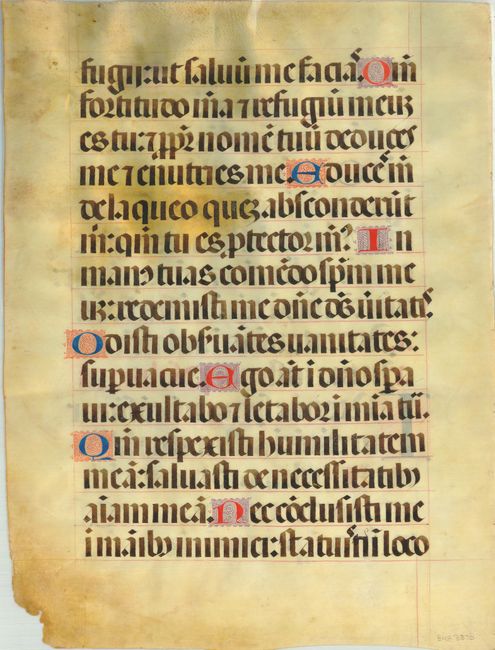 fugij: ut saluū me faciās. Qm̄
fortitudo m̄a ⁊ refugiū meuꝫ
es tu: ⁊ ꝓpt̄ nomē tuū deduces
me ⁊ enutries me. Educes m̄
de laqueo queꝫ absconderūt
m̄: qm̄ tu es ꝓtector m̄s. In
manꝰ tuas comēdo spm̄ me
uꝫ: redemisti me dn̄e ds̄ u̇itatis.
Odisti obsuātes uanitates:
supuacue. Ego āt i dn̄o spa
ui: exultabo ⁊ letabor i mia tū.
Qm̄ respexisti humilitatem
meā: saluasti de necessitatibꝰ
aīam meā. Nec cōclusisti me
i māibꝰ inimici: statuisti ī loco